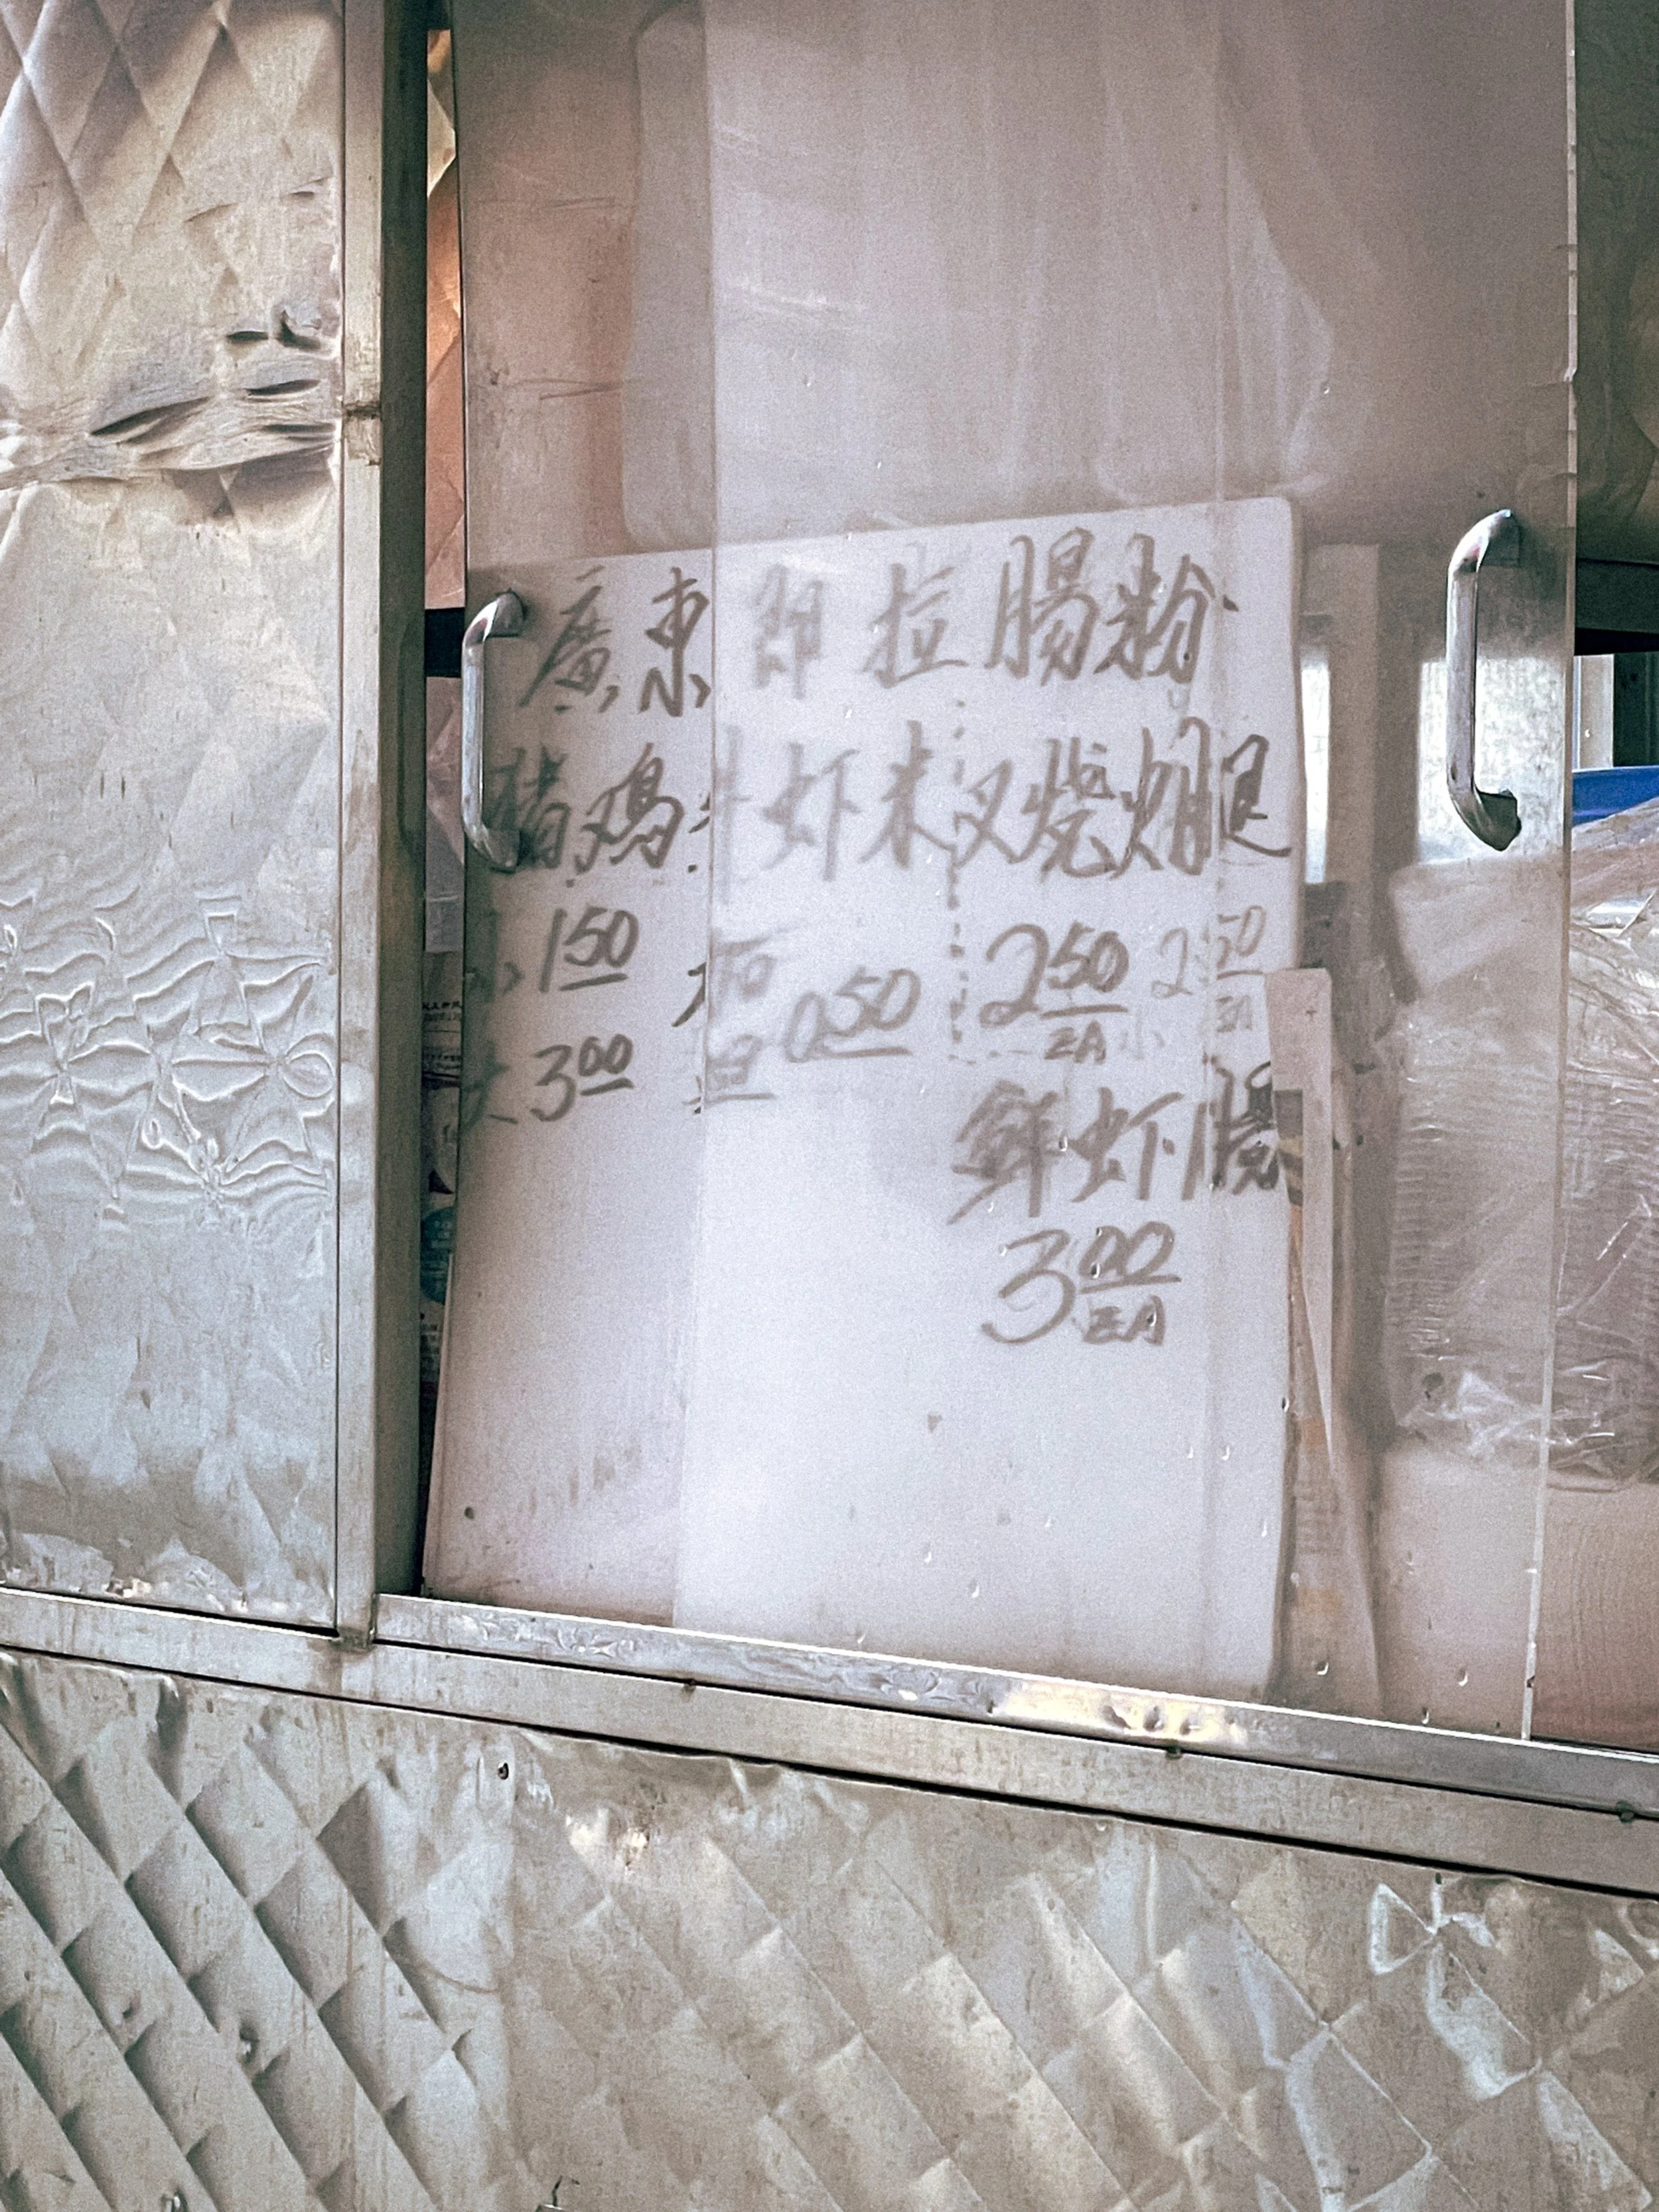 廣東即拉腸粉
猪鸡牛虾米叉烧火腿
小 1.50 加 2.50 2.50
大 3.00 蛋 0.50 EA EA
鲜虾腸
3.00
EA